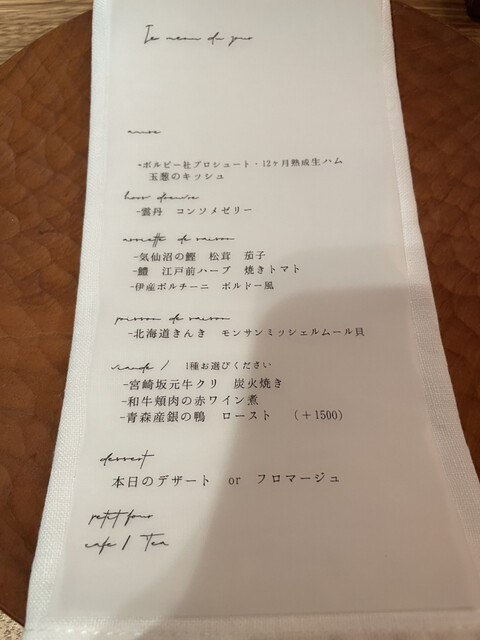 Le menu du jour
amuse
・ボルピー社プロシュート・12ヶ月熟成生ハム
玉葱のキッシュ
hors d'oeuvre
-雲丹 コンソメゼリー
assiette de saison
-気仙沼の鰹 松茸 茄子
-鱧 江戸前ハーブ 焼きトマト
-伊産ポルチーニ ボルドー風
poisson de saison
-北海道きんき モンサンミッシェルムール貝
viande / 1種お選びください
-宮崎坂元牛クリ 炭火焼き
-和牛頬肉の赤ワイン煮
-青森産銀の鴨 ロースト (+1500)
dessert
本日のデザート or フロマージュ
petit four
cafe / Tea